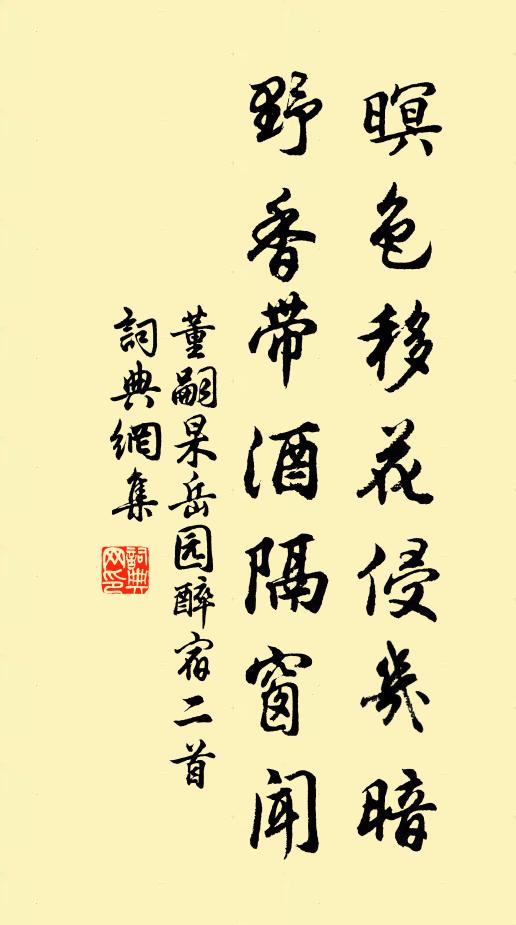 暝色移花侵几暗
野香带酒隔窗闻
董嗣杲岳园醉宿二首
詞典網集
詞典网印